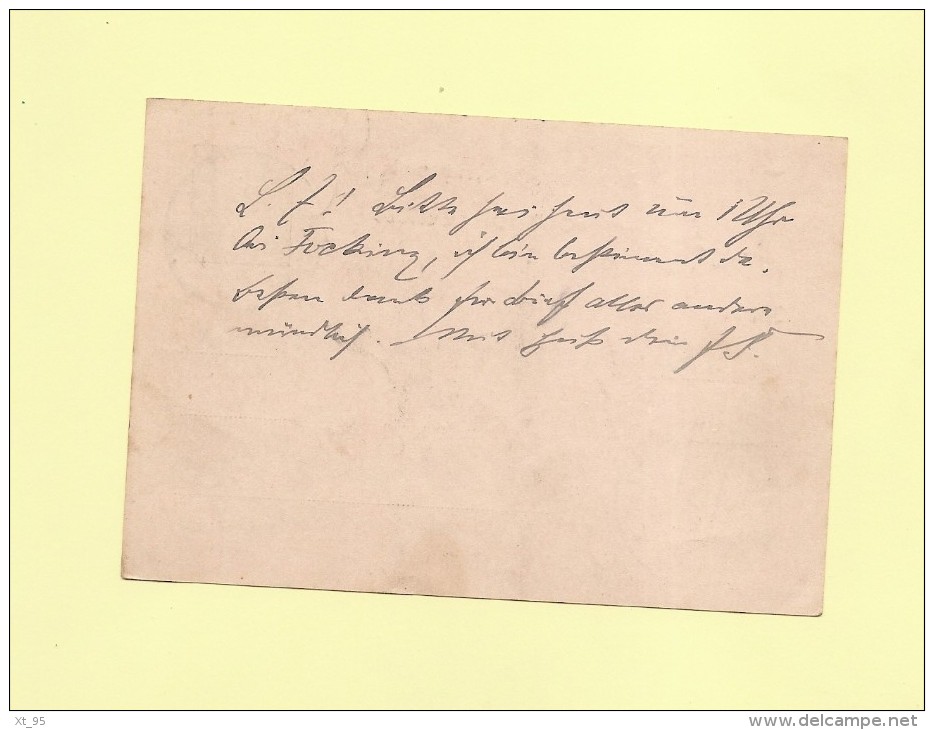 L. F! Bitte sei heut um 1 Uhr
bei Focking, ich bin bestimmt da.
Besten Dank für Brief alles andere
mündlich. Mit Gruß dein
Xt_95
www.delcampe.net